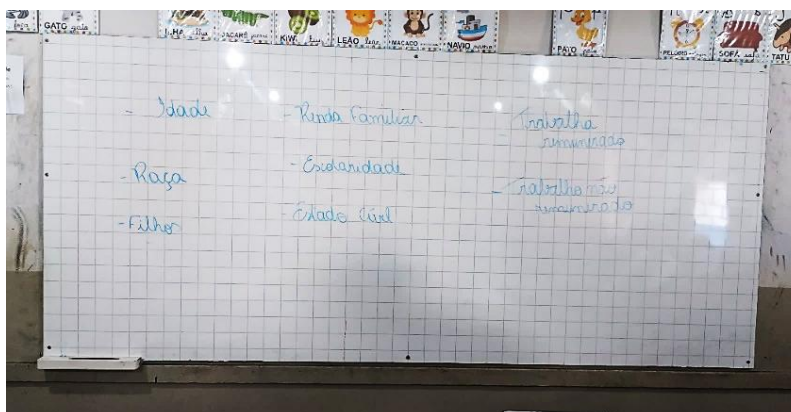 GATO gato
JACARÉ
KIWI
LEÃO leão
MACACO
NAVIO navio
PATO
RELÓGIO
SOFÁ sofá
TATU
- Idade
- Raça
- Filhos
- Renda Familiar
- Escolaridade
- Estado Civil
Trabalha
remunerado
- Trabalho não
remunerado